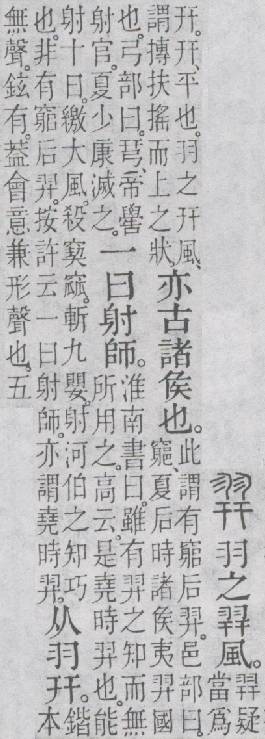 羿 羽之羿風。羿疑當爲
幵。幵、平也。羽之幵風、謂摶扶搖而上之狀、亦古諸矦也。此謂有竆后羿。邑部曰。竆、夏后時諸矦夷羿國
也。弓部曰。𢏗、帝嚳射官。夏少康滅之。一曰射師。淮南書曰。雖有羿之知而無所用之。高云。是堯時羿也。能
射十日。繳大風。殺窫窳。斬九嬰。射河伯之知巧也。非有竆后羿。按許云一曰射師。亦謂堯時羿。从羽幵。鍇本
無聲。鉉有。葢會意兼形聲也。五